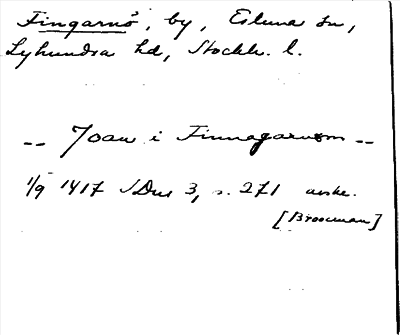 Fingarnö, by, Estuna sn,
Lyhundra hd, Stockh. l.
-- Joan i Finnagarnom --
1/9 1417 SDns 3, s. 271 avskr.
[Brocman]